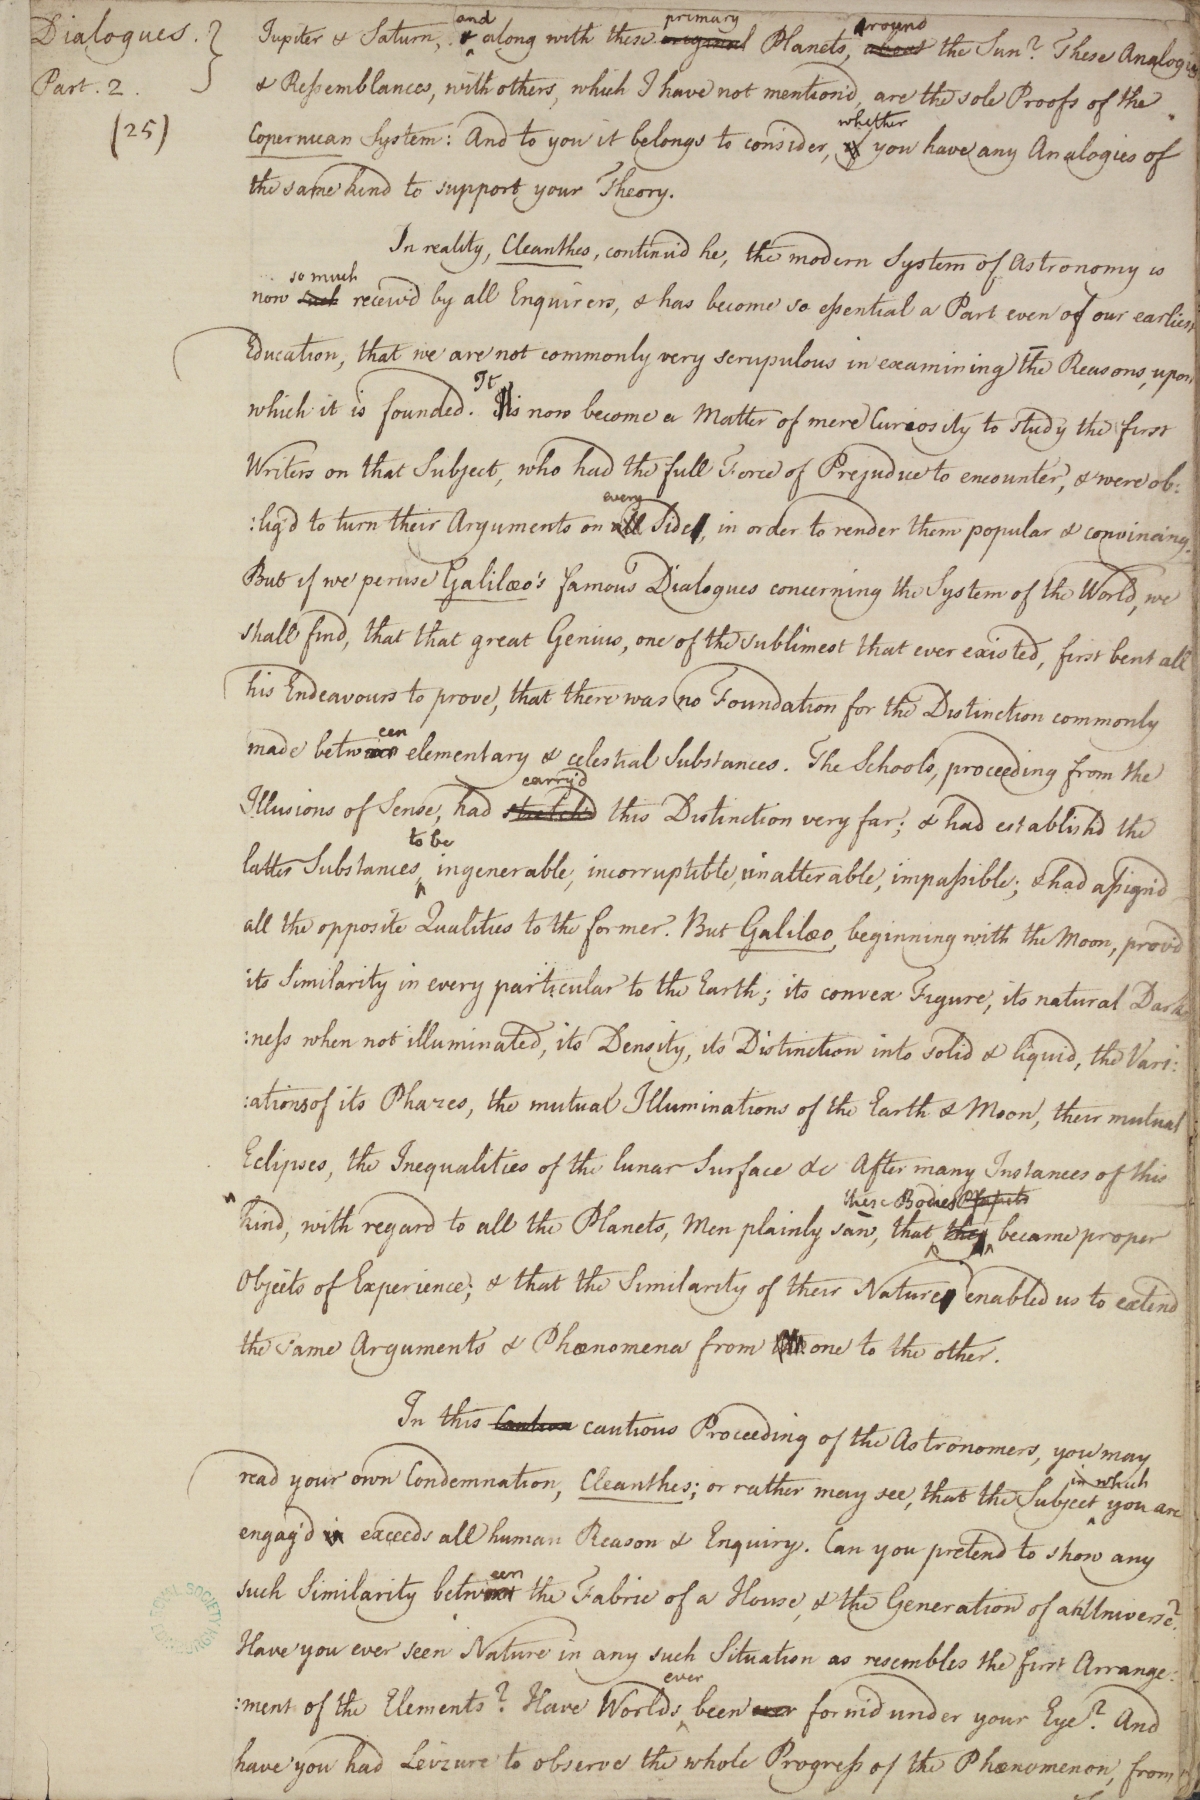 Dialogues.
Part. 2.
(25)
and primary around
Jupiter & Saturn, & along with these original Planets, about the Sun? These Analogies
& Ressemblances, with others, which I have not mention'd, are the sole Proofs of the
whether
Copernican System: And to you it belongs to consider, if you have any Analogies of
the same kind to support your Theory.
In reality, Cleanthes, continu'd he, the modern System of Astronomy is
so much
now receiv'd by all Enquirers, & has become so essential a Part even of our earliest
Education, that we are not commonly very scrupulous in examining the Reasons, upon
It
which it is founded. is now become a Matter of mere Curiosity to study the first
Writers on that Subject, who had the full Force of Prejudice to encounter, & were ob:
every
:lig'd to turn their Arguments on all Side, in order to render them popular & convincing.
But if we peruse Galilæo's famous Dialogues concerning the System of the World, we
shall find, that that great Genius, one of the sublimest that ever existed, first bent all
his Endeavours to prove, that there was no Foundation for the Distinction commonly
een
made betwixt elementary & celestial Substances. The Schools, proceeding from the
carry'd
Illusions of Sense, had stretch'd this Distinction very far; & had establish'd the
to be
latter Substances, ingenerable, incorruptible, unalterable, impassible; & had assign'd
all the opposite Qualities to the former. But Galilæo, beginning with the Moon, prov'd
its Similarity in every particular to the Earth; its convex Figure, its natural Dark
:ness when not illuminated, its Density, its Distinction into solid & liquid, the Vari:
:ations of its Phazes, the mutual Illuminations of the Earth & Moon, their mutual
Eclipses, the Inequalities of the lunar Surface &c After many Instances of this
these Bodies Planets
kind, with regard to all the Planets, Men plainly saw, that they became proper
Objects of Experience; & that the Similarity of their Nature enabled us to extend
the same Arguments & Phænomena from one to the other.
In this Caution cautious Proceeding of the Astronomers, you may
read your own Condemnation, Cleanthes; or rather may see, that the Subject you are
in which
engag'd in exceeds all human Reason & Enquiry. Can you pretend to show any
een
such Similarity betwixt the Fabric of a House, & the Generation of an Universe?
Have you ever seen Nature in any such Situation as resembles the first Arrange:
ever
:ment of the Elements? Have Worlds been ever form'd under your Eye? And
have you had Leizure to observe the whole Progress of the Phænomenon, from